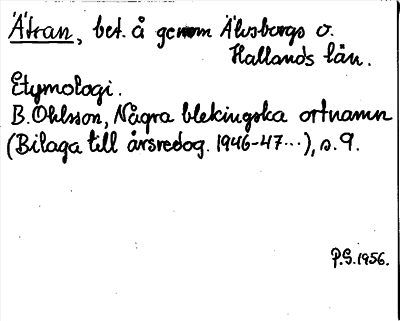 Ätran, bet. å genom Älvsborgs o.
Hallands län.
Etymologi.
B. Ohlsson, Några blekingska ortnamn
(Bilaga till årsredog. 1946-47...), s. 9.
P.G. 1956.